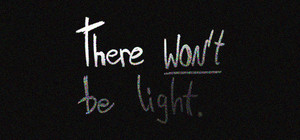 There won't
be light.